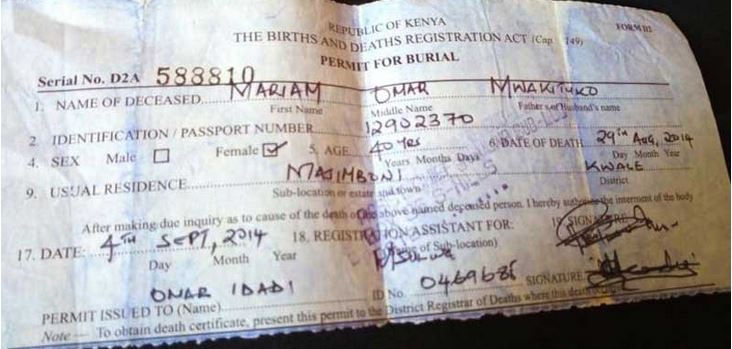 REPUBLIC OF KENYA FORM III
THE BIRTHS AND DEATHS REGISTRATION ACT (Cap. 149)
PERMIT FOR BURIAL
Serial No. D2A 588810
1. NAME OF DECEASED MARIAM OMAR MWAKITUKO
First Name Middle Name Father's or Husband's name
2. IDENTIFICATION / PASSPORT NUMBER 12902370
4. SEX Male Female 5. AGE 40 yrs 6. DATE OF DEATH 29th Aug, 2014
Years Months Days Day Month Year
9. USUAL RESIDENCE MAJIMBONI KWALE
Sub-location or estate and town District
After making due inquiry as to cause of the death of the above named deceased person. I hereby authorise the interment of the body
17. DATE: 4TH SEPT, 2014 18. REGISTRATION ASSISTANT FOR: 19. SIGNATURE
Day Month Year (Name of Sub-location)
PERMIT ISSUED TO (Name) OMAR IDADI ID No. SIGNATURE
Note — To obtain death certificate, present this permit to the District Registrar of Deaths where this death